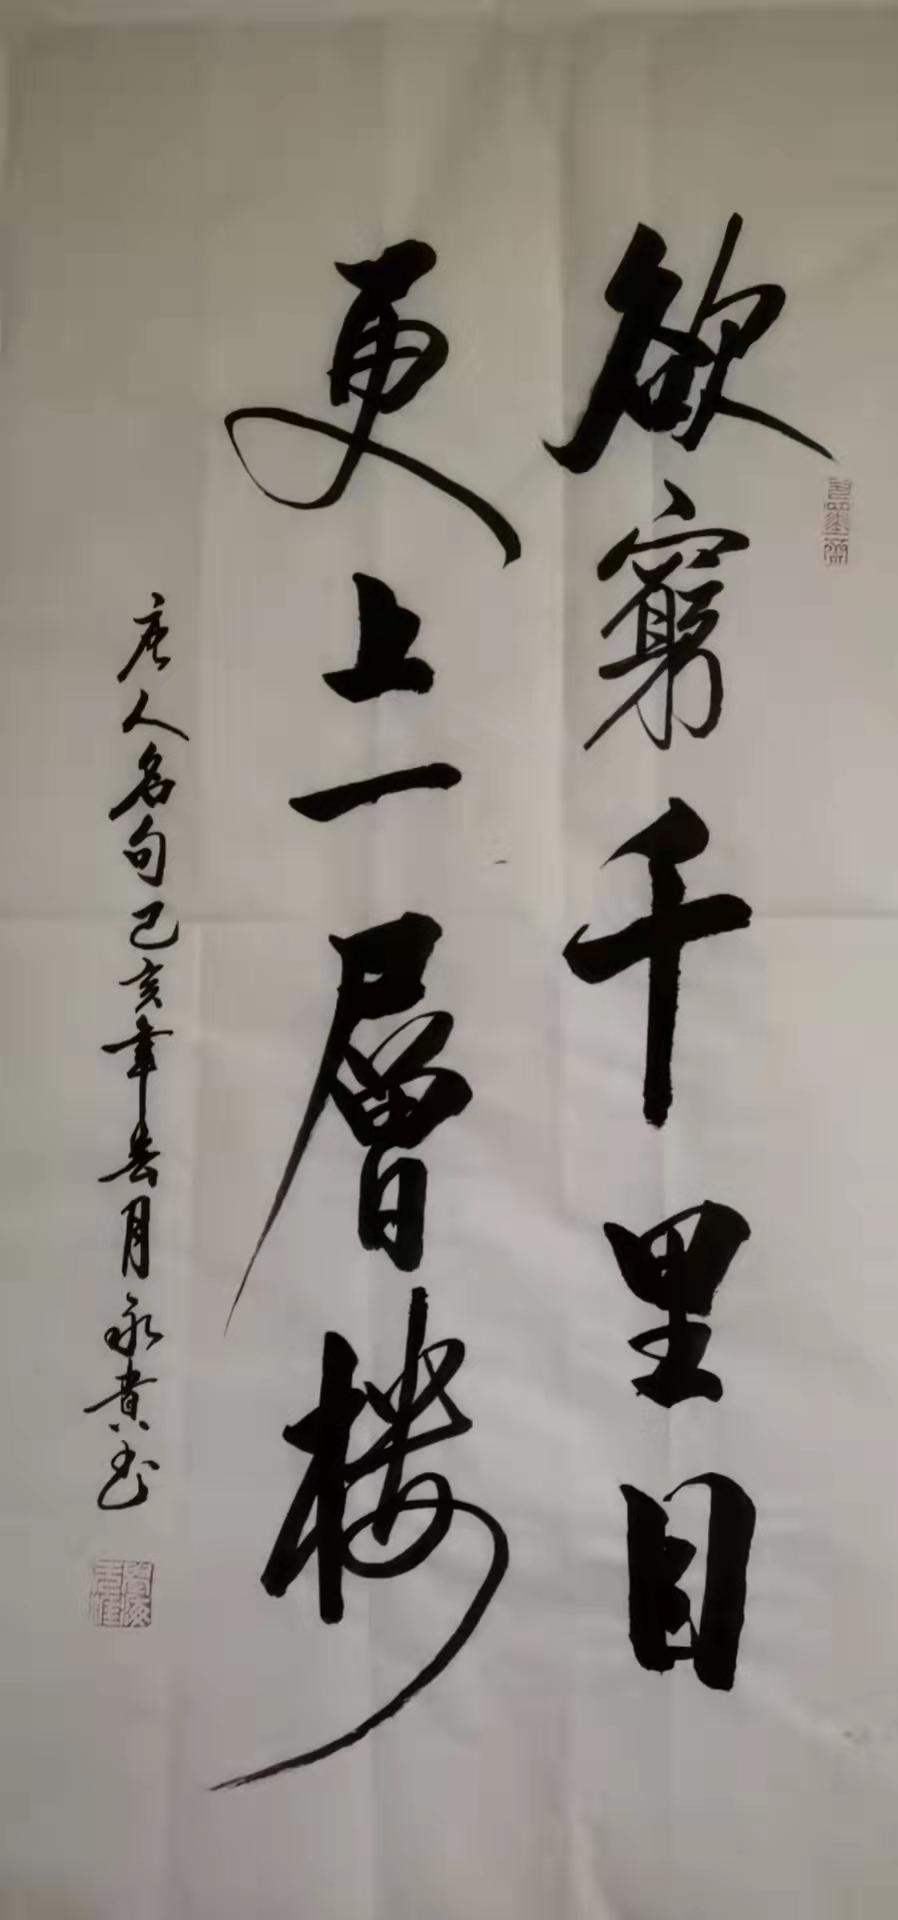 欲窮千里目
更上一層樓
唐人名句己亥年去月永貴书